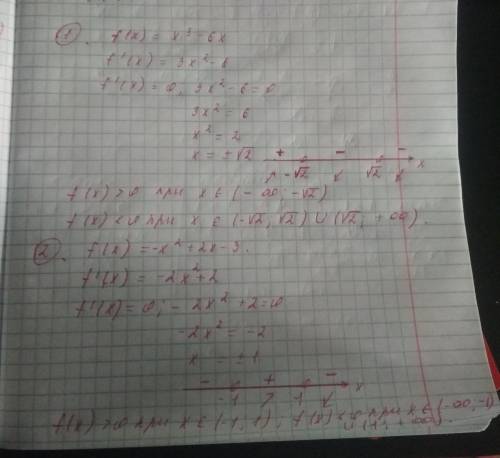 1. f(x) = x³ - 6x
f'(x) = 3x² - 6
f'(x) = 0, 3x² - 6 = 0
3x² = 6
x² = 2
x = ±√2
+ - -
-√2 √2 x
f(x) > 0 при x ∈ (-∞; -√2)
f(x) < 0 при x ∈ (-√2, √2) ∪ (√2; +∞).
2. f(x) = -x² + 2x - 3.
f'(x) = -2x² + 2
f'(x) = 0; -2x² + 2 = 0
-2x² = -2
x ±1
- + -
-1 1 x
f(x) > 0 при x ∈ (-1; 1), f(x) < 0 при x ∈ (-∞, -1)
∪ (1; +∞).